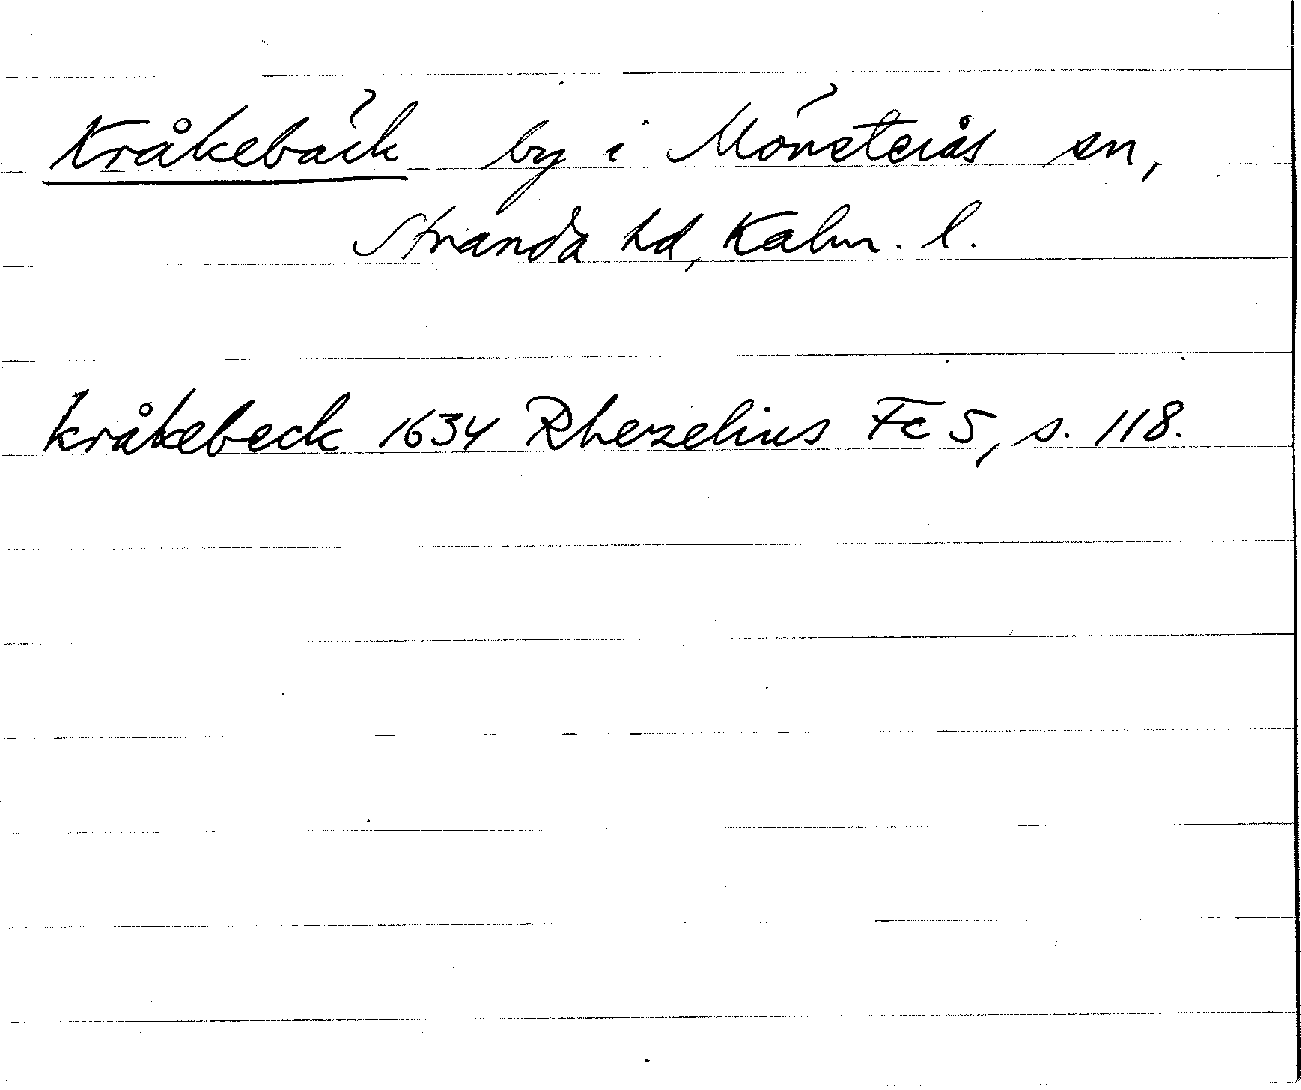 Kråkebäck by i Mönsterås sn,
Stranda hd, Kalm. l.
kråkebeck 1634 Rhezelius Fc 5, s. 118.